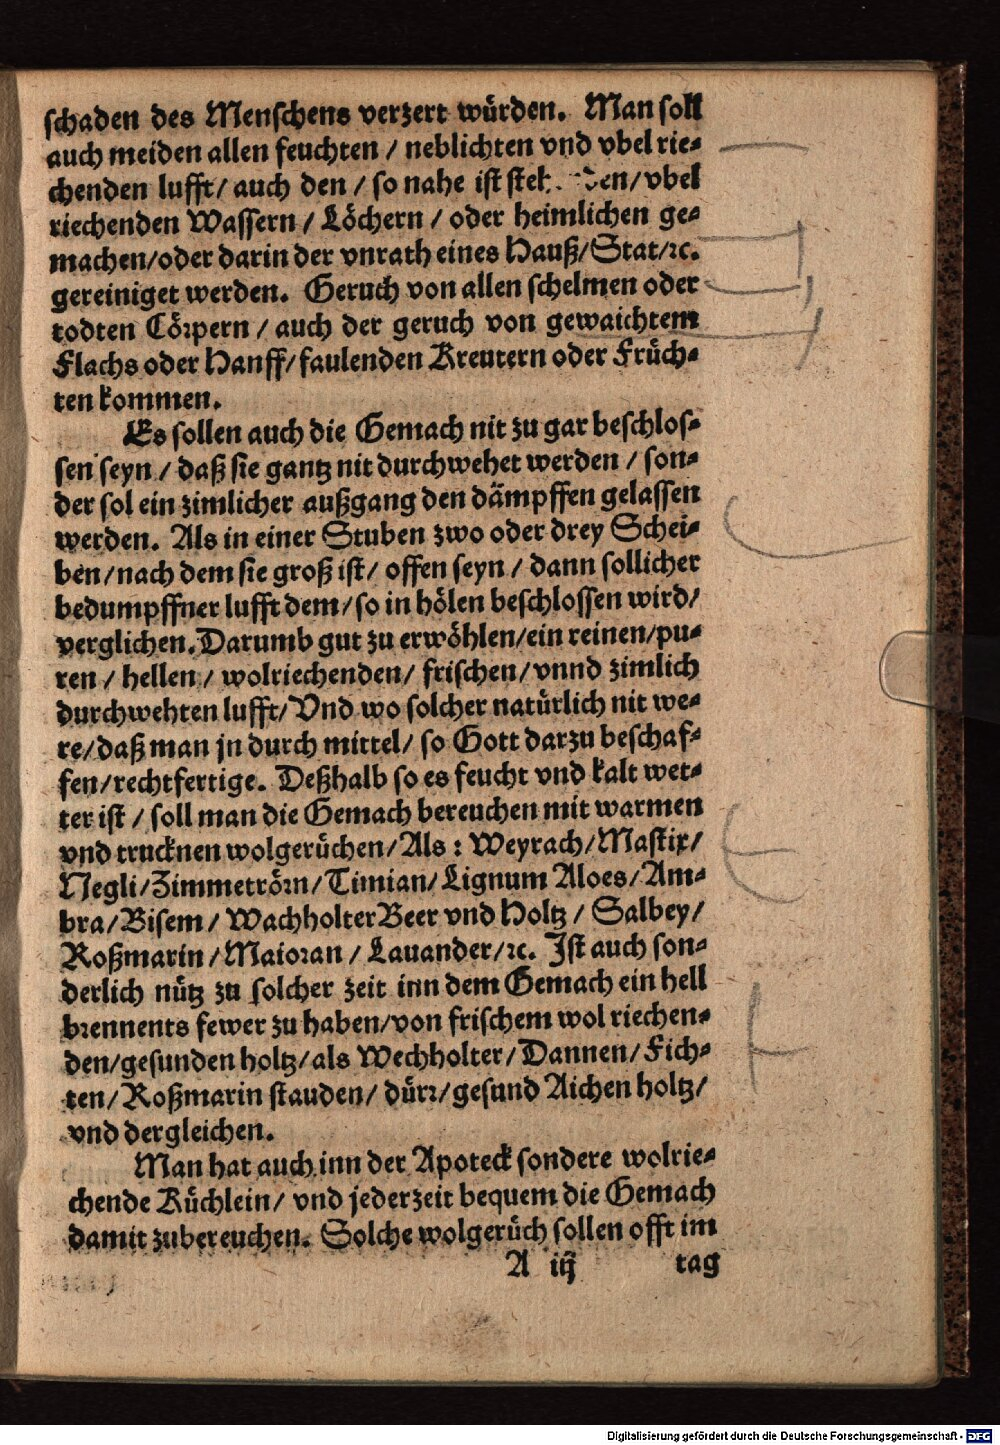 schaden des Menschens verzert würden. Man soll
auch meiden allen feuchten / neblichten vnd vbel rie⸗
chenden lufft/ auch den / so nahe ist vbel
riechenden Wassern / Löchern / oder heimlichen ge⸗
machen/oder darin der vnrath eines Hauß/Stat/ꝛc.
gereiniget werden. Geruch von allen schelmen oder
todten Cörpern / auch der geruch von gewaichtem
Flachs oder Hanff/faulenden Kreutern oder Früch⸗
ten kommen.
Es sollen auch die Gemach nit zu gar beschlos⸗
sen seyn / daß sie gantz nit durchwehet werden / son⸗
der sol ein zimlicher außgang den dämpffen gelassen
werden. Als in einer Stuben zwo oder drey Schei⸗
ben/nach dem sie groß ist/ offen seyn / dann sollicher
bedumpffner lufft dem/so in hölen beschlossen wird/
verglichen. Darumb gut zu erwöhlen/ein reinen/pu⸗
ren / hellen / wolriechenden/ frischen/vnnd zimlich
durchwehten lufft/Vnd wo solcher natürlich nit we⸗
re/daß man jn durch mittel/ so Gott darzu beschaf⸗
fen/rechtfertige. Deßhalb so es feucht vnd kalt wet⸗
ter ist / soll man die Gemach bereuchen mit warmen
vnd trucknen wolgerüchen/Als : Weyrach/Mastix/
Negli/Zimmetrörn/Timian/Lignum Aloes/Am⸗
bra/Bisem/ Wachholter Beer vnd Holtz / Salbey/
Roßmarin/Maioran / Lauander/ꝛc. Ist auch son⸗
derlich nütz zu solcher zeit inn dem Gemach ein hell
brennents fewer zu haben/von frischem wol riechen⸗
den/gesunden holtz/als Wechholter/Dannen/Fich⸗
ten/Roßmarin stauden/ dürr/gesund Aichen holtz/
vnd dergleichen.
Man hat auch inn der Apoteck sondere wolrie⸗
chende Küchlein/ vnd jederzeit bequem die Gemach
damit zubereuchen. Solche wolgerüch sollen offt im
A iij tag
Digitalisierung gefördert durch die Deutsche Forschungsgemeinschaft - DFG